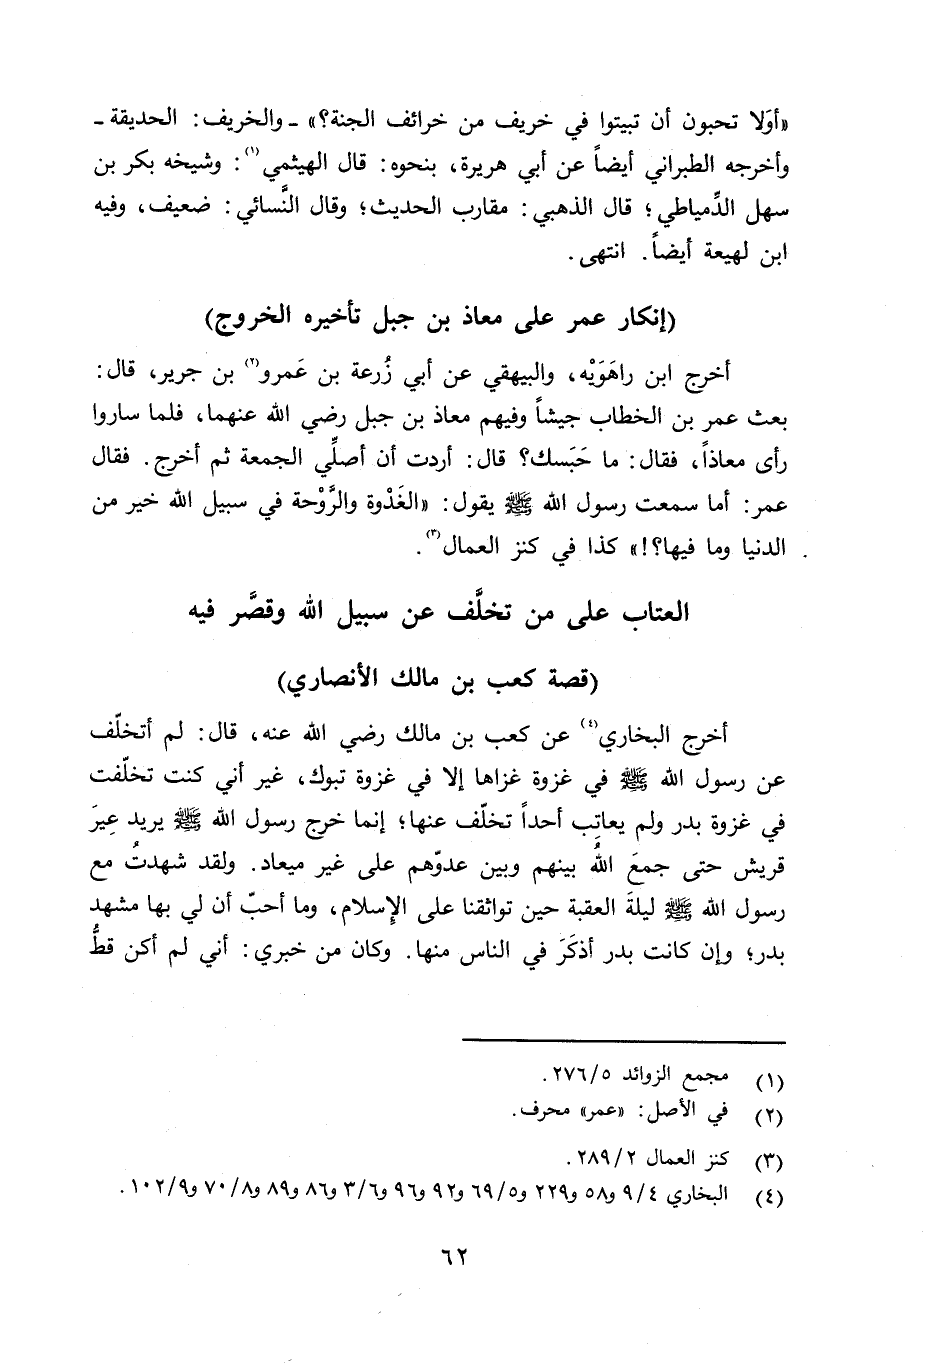 «أوَلا تحبون أن تبيتوا في خريف من خرائف الجنة؟» ـ والخريف: الحديقة ـ
وأخرجه الطبراني أيضاً عن أبي هريرة، بنحوه: قال الهيثمي(١): وشيخه بكر بن
سهل الدِّمياطي؛ قال الذهبي: مقارب الحديث؛ وقال النَّسائي: ضعيف، وفيه
ابن لهيعة أيضاً. انتهى.
(إنكار عمر على معاذ بن جبل تأخيره الخروج)
أخرج ابن راهَوَيْه، والبيهقي عن أبي زُرعة بن عَمرو(٢) بن جرير، قال:
بعث عمر بن الخطاب جيشاً وفيهم معاذ بن جبل رضي الله عنهما، فلما ساروا
رأى معاذاً، فقال: ما حَبَسك؟ قال: أردت أن أصلِّي الجمعة ثم أخرج. فقال
عمر: أما سمعت رسول الله ﷺ يقول: «الغَدْوة والرَّوْحة في سبيل الله خير من
الدنيا وما فيها؟!» كذا في كنز العمال(٣).
العتاب على من تخلَّف عن سبيل الله وقصَّر فيه
(قصة كعب بن مالك الأنصاري)
أخرج البخاري(٤) عن كعب بن مالك رضي الله عنه، قال: لم أتخلّف
عن رسول الله ﷺ في غزوة غزاها إلا في غزوة تبوك، غير أني كنت تخلّفت
في غزوة بدر ولم يعاتِب أحداً تخلّف عنها؛ إنما خرج رسول الله ﷺ يريد عِيرَ
قريش حتى جمعَ اللهُ بينهم وبين عدوّهم على غير ميعاد. ولقد شهدتُ مع
رسول الله ﷺ ليلةَ العقبة حين تواثقنا على الإسلام، وما أحبّ أن لي بها مشهد
بدر؛ وإن كانت بدر أذكَرَ في الناس منها. وكان من خبري: أني لم أكن قطُّ
(١) مجمع الزوائد ٢٧٦/٥.
(٢) في الأصل: «عمر» محرف.
(٣) كنز العمال ٢٨٩/٢.
(٤) البخاري ٩/٤ و٥٨ و٢٢٩ و٦٩/٥ و٩٢ و٩٦ و٣/٦ و٨٦ و٨٩ و٧٠/٨ و١٠٢/٩.
٦٢